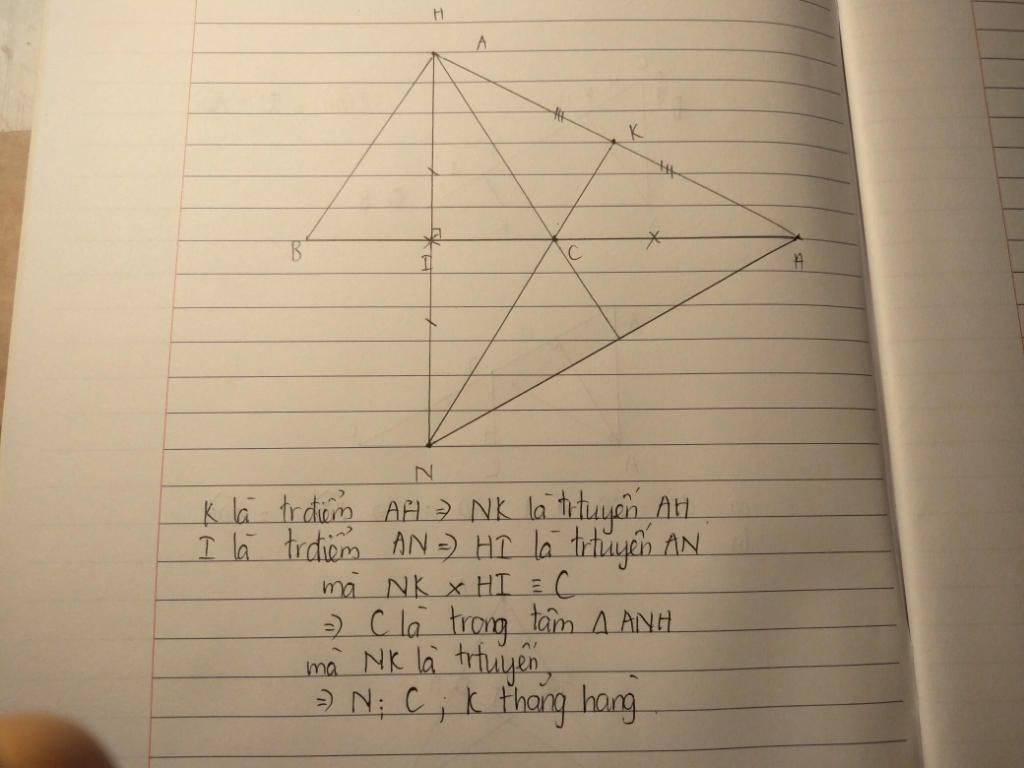 H
A
K
B
I
C
A
N
K là trđiểm AH => NK là trtuyến AH
I là trđiểm AN => HI là trtuyến AN
mà NK x HI ≡ C
=> C là trong tâm Δ ANH
mà NK là trtuyến
=> N; C; K thẳng hàng.